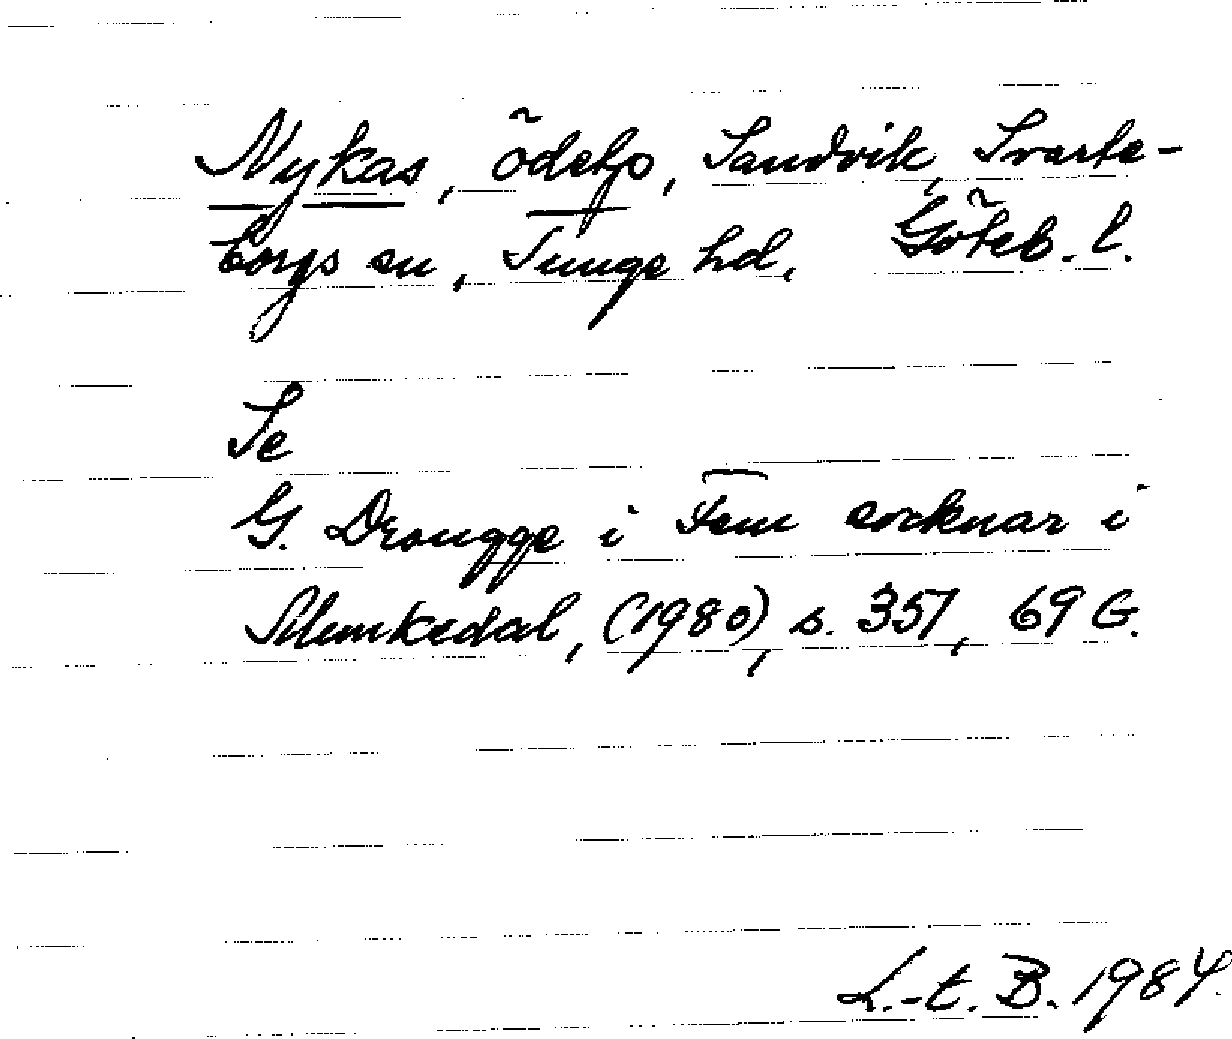 Nykas, ödetp, Sandvik, Svarte-
borgs sn, Tunge hd, Göteb. l.
Se
G. Drougge i Fem socknar i
Munkedal, (1980), s. 351, 69 G.
L.-t. B. 1984.